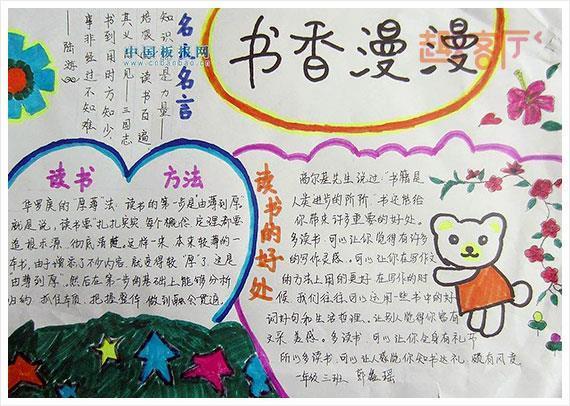 书香漫漫
趣客厅
中国板报网
www.cnbanbao.cn
名人名言
知识就是力量——
培根 读书百遍
其义自见——三国志
书到用时方知少,
事非经过不知难
——陆游
读书方法
华罗庚的"厚薄"法:读书的第一步是由薄到厚"
就是说,读书要扎扎实实 每个概念 定理都要
追根求源 彻底清楚,这样一来 本来较薄的一
本书,由于增添了不少内容,就变得较"厚"了"这是
由薄到厚",然后在第一步的基础上能够分析
归纳 抓住本质 把握整体 做到融会贯通
读书的好处
高尔基先生说过:"书籍是
人类进步的阶梯"书还能给
你带来许多重要的好处。
多读书,可以让你觉得有许多
的写作灵感,可以让你在写作文
的方法上用的更好 在写作的时
候 我们往往可以运用一些书中的好
词好句和生活哲理。让别人觉得你富有
文采 美感。多读书 可以让你全身有礼节
所以多读书,可以让人感觉你知书达礼 颇有风度
一年级三班